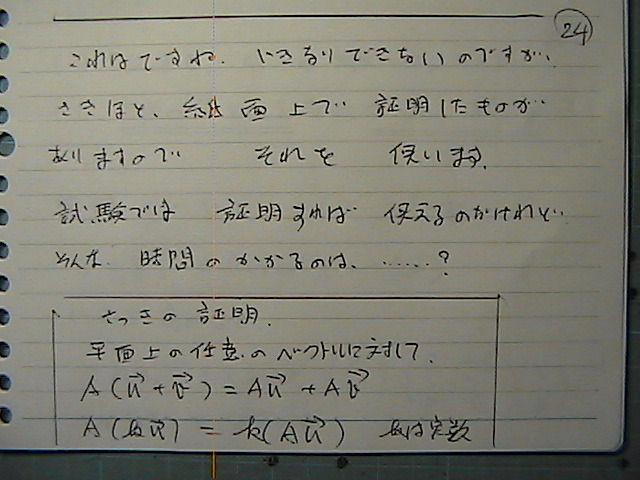 24
これはですね. いきなりできないのですが、
さきほど、紙面上で 証明したものが
ありますので それを 使います.
試験では 証明すれば 使えるのかけれど..
そんな. 時間のかかるのは、......?
さっきの 証明.
平面上の任意のベクトルに対して.
A(u⃗ + v⃗) = Au⃗ + Av⃗
A(ku⃗) = k(Au⃗) kは定数